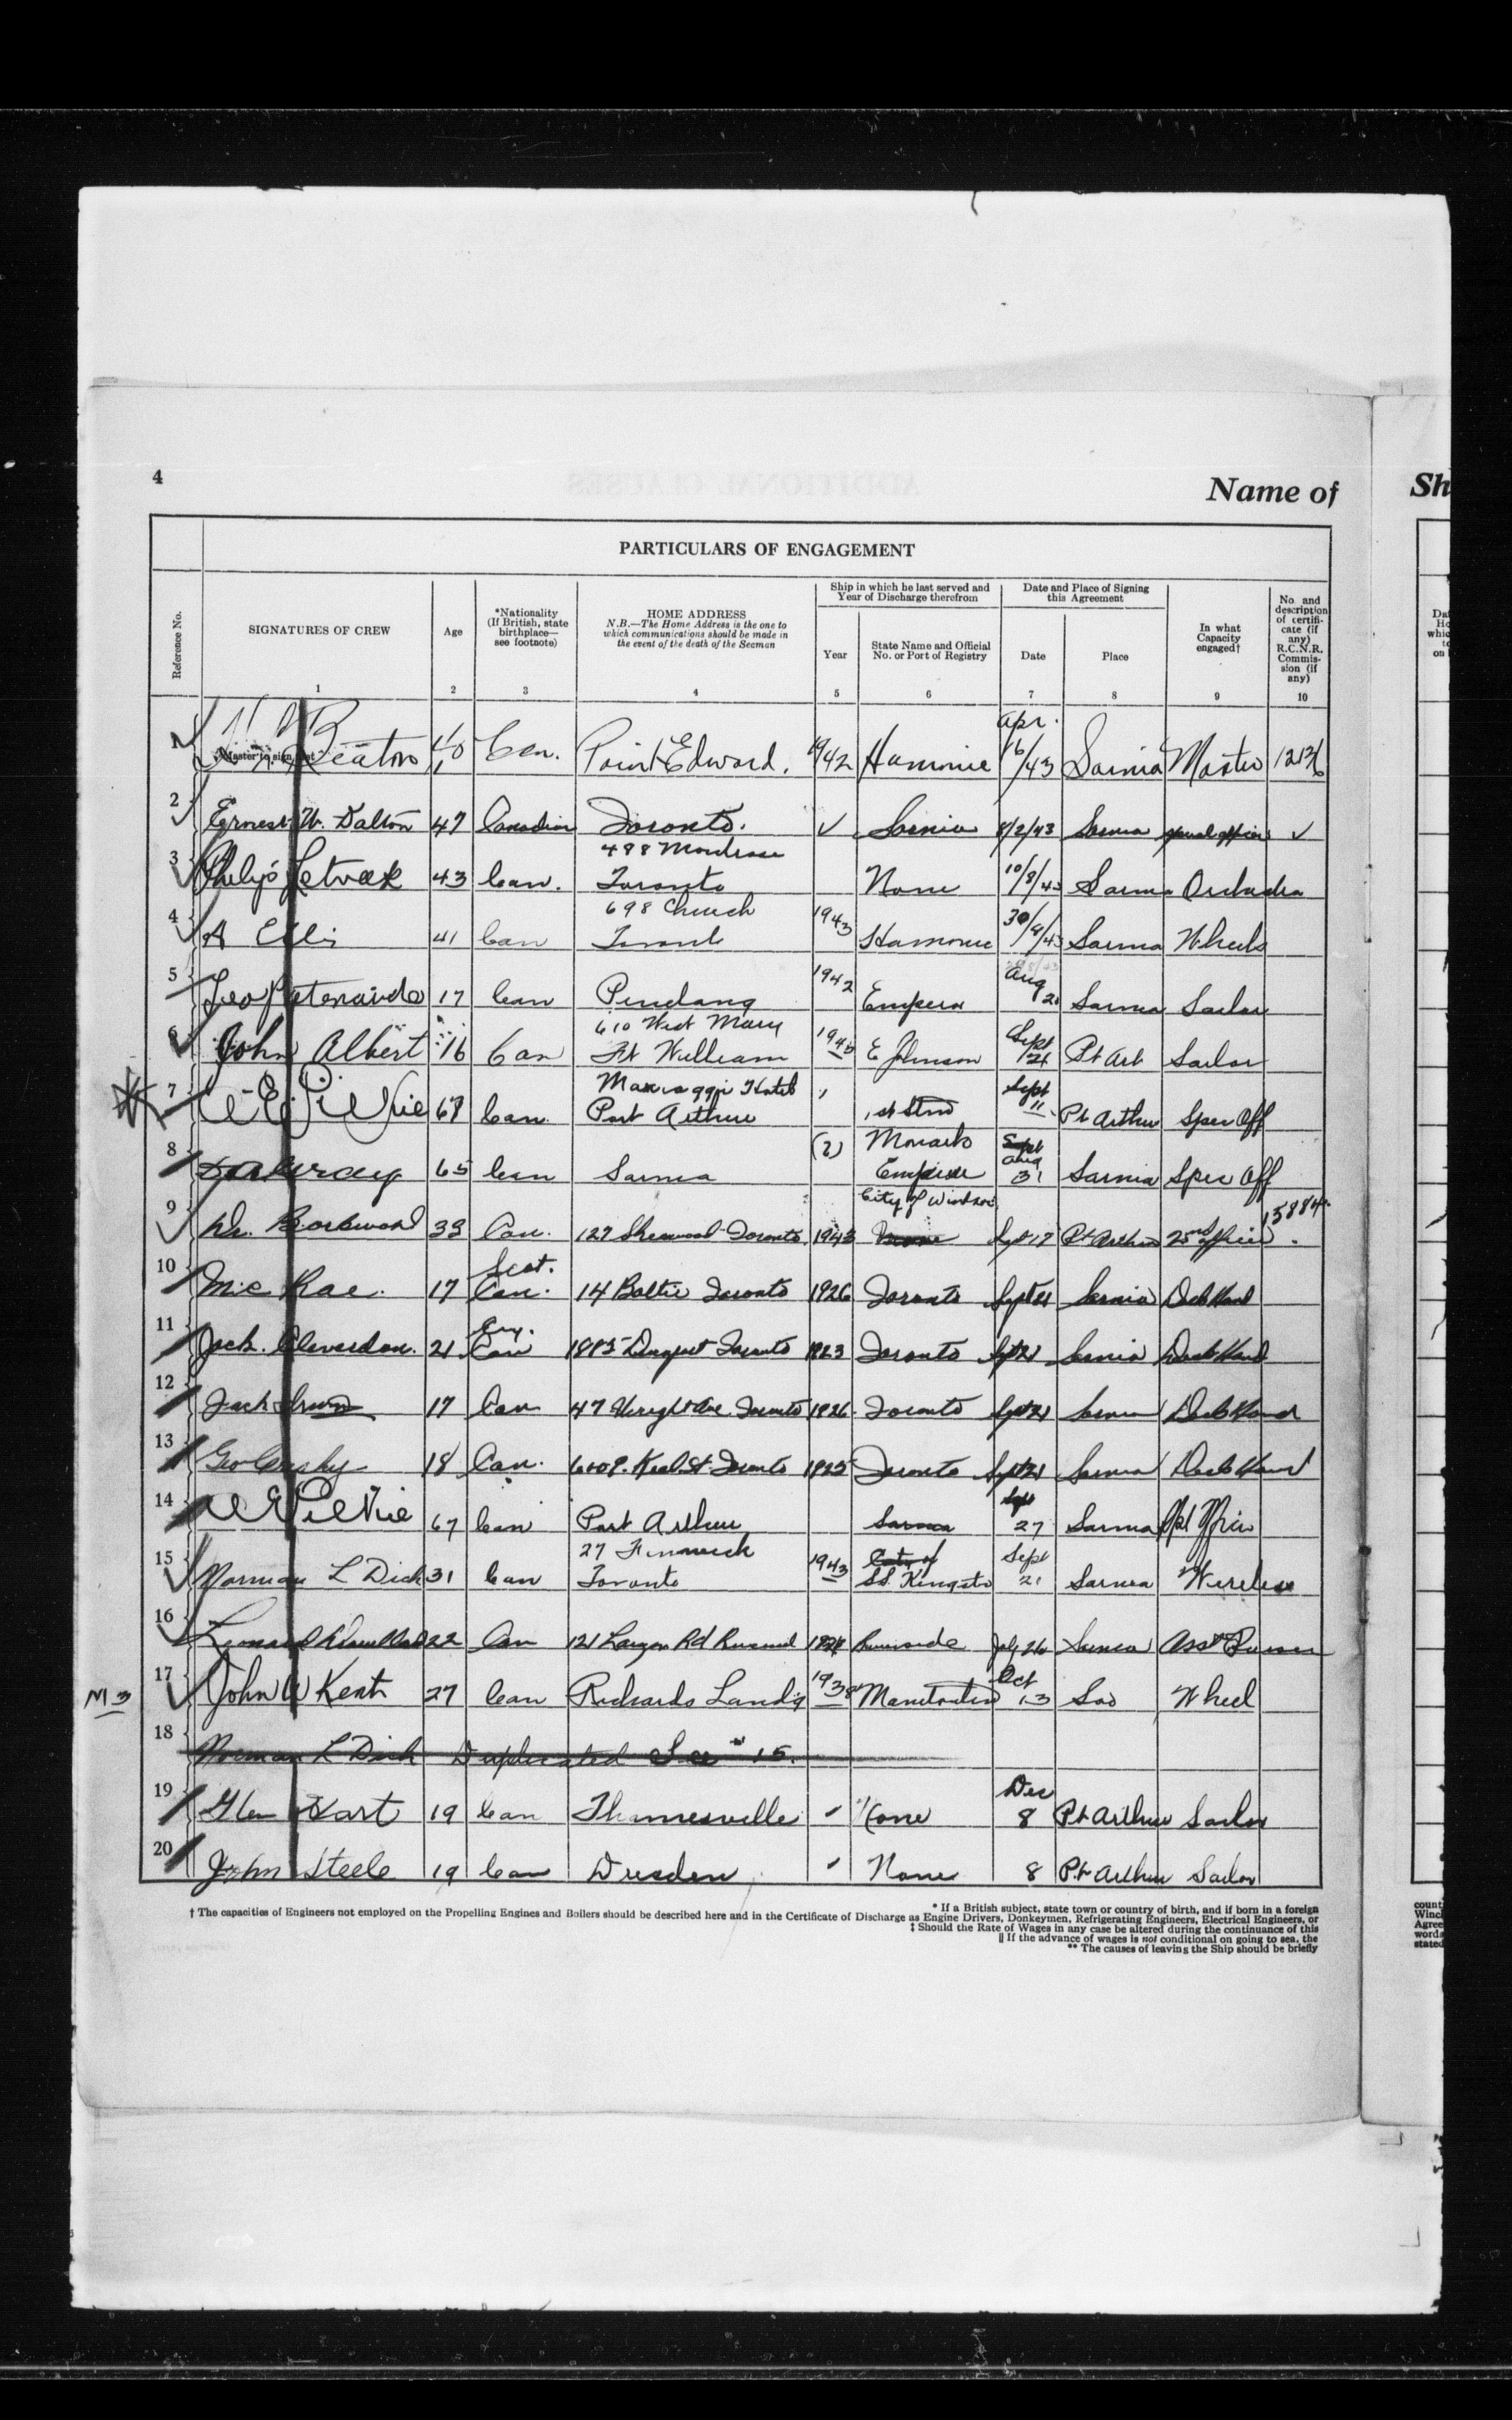 4
Name of
Sh
PARTICULARS OF ENGAGEMENT
Reference No.
SIGNATURES OF CREW
Age
*Nationality
(If British, state
birthplace—
see footnote)
HOME ADDRESS
N.B.—The Home Address is the one to
which communications should be made in
the event of the death of the Seaman
Ship in which he last served and
Year of Discharge therefrom
Year
State Name and Official
No. or Port of Registry
Date and Place of Signing
this Agreement
Date
Place
In what
Capacity
engaged†
No. and
description
of certifi-
cate (if
any)
R.C.N.R.
Commis-
sion (if
any)
1 2 3 4 5 6 7 8 9 10
1 Beaton 40 Can. Point Edward. 1942 Hamonic Apr. 16/43 Sarnia Master
2 Ernest W. Dalton 47 Canadian Toronto. ✓ Sarnia 8/2/43 Sarnia ✓
498 Montrose
3 43 Can. Toronto None 10/8/43 Sarnia Orchestra
698 Church
4 A Ellis 41 Can Toronto 1943 Hamonic 30/9/43 Sarnia Wheels
5 Leo 17 Can Penetang 1942 Aug 21 Sarnia Sailor
610 West Mary
6 John Albert 16 Can Ft William 1943 E Johnson Sept 21 Pt Art Sailor
Hotel
7 67 Can. Port Arthur Sept 11 Pt Arthur Spec Off
8 65 Can Sarnia Aug 31 Sarnia Spec Off
City of Windsor
9 33 Can. 127 Sherwood Toronto 1943 Sept 17 Pt Arthur 2nd Officer 15884
Scot.
10 McRae. 17 Can. 14 Baltic Toronto 1926 Toronto Sept 21 Sarnia Deck Hand
Eng.
11 Jack 21 Can Toronto 1923 Toronto Sept 21 Sarnia Deck Hand
12 Jack Irwin 17 Can 47 Wright Ave. Toronto 1926 Toronto Sept 21 Sarnia Deck Hand
13 Geo 18 Can. Keele St. Toronto 1925 Toronto Sept 21 Sarnia Deck Hand
14 67 Can Port Arthur Sarnia Sept 27 Sarnia Spl Officer
27
15 Norman L Dick 31 Can Toronto 1943 City of S.S. Kingston Sept 21 Sarnia Wireless
16 Leonard 22 Can 121 Rd Riverside July 26 Sarnia Asst Purser
M 3
17 John W Kent 27 Can Richards Land'g 1938 Manitoulin Oct 13 Soo Wheel
18 Norman L Dick Duplicated See 15.
19 Glen Hart 19 Can Thamesville None Dec 8 Pt Arthur Sailor
20 John Steele 19 Can Dresden None 8 Pt Arthur Sailor
* If a British subject, state town or country of birth, and if born in a foreign
† The capacities of Engineers not employed on the Propelling Engines and Boilers should be described here and in the Certificate of Discharge as Engine Drivers, Donkeymen, Refrigerating Engineers, Electrical Engineers, or
‡ Should the Rate of Wages in any case be altered during the continuance of this
|| If the advance of wages is not conditional on going to sea, the
** The causes of leaving the Ship should be briefly
count
Winch
Agree
words
stated